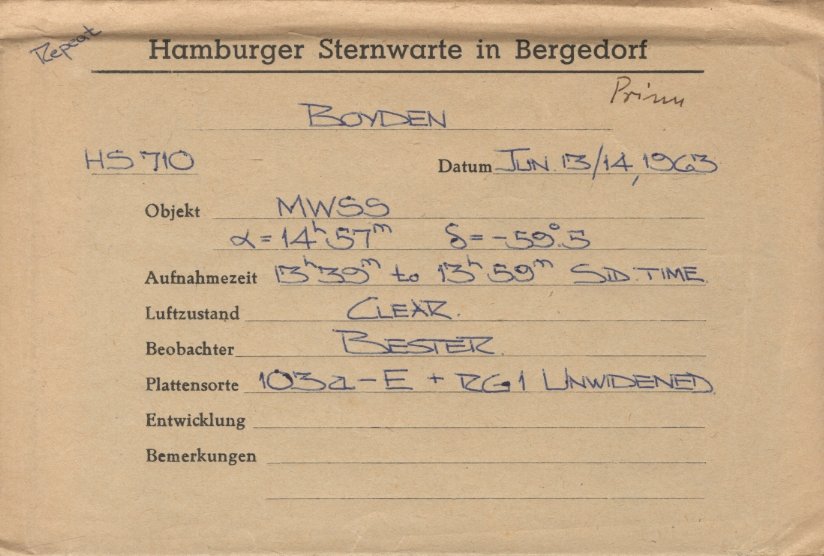 Repeat
Hamburger Sternwarte in Bergedorf
Prism
BOYDEN
HS 710 Datum JUN. 13/14, 1963
Objekt MWSS
α = 14ʰ 57ᵐ δ = -59°.5
Aufnahmezeit 13ʰ39ᵐ to 13ʰ59ᵐ SID. TIME.
Luftzustand CLEAR.
Beobachter BESTER.
Plattensorte 103a-E + RG1 UNWIDENED.
Entwicklung
Bemerkungen